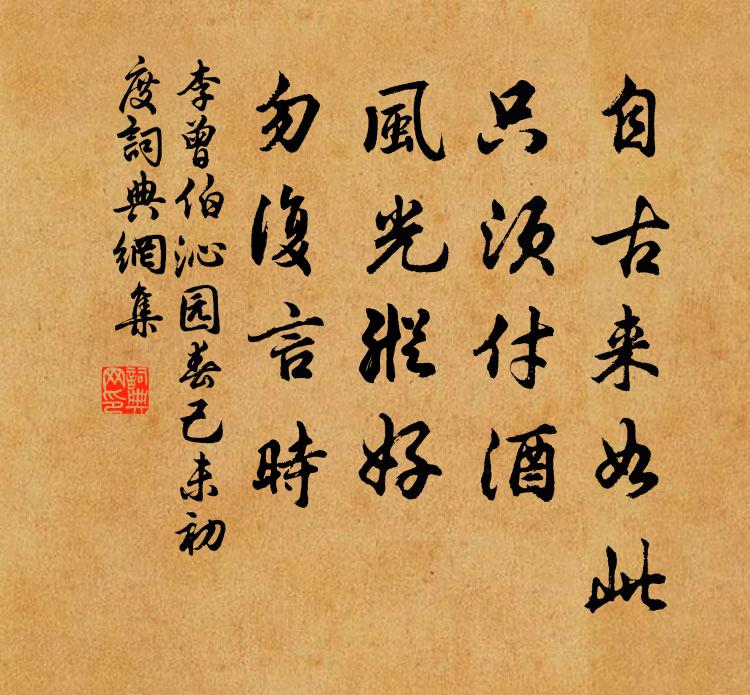 自古来如此
只须付酒
風光縱好
勿復言時
李曾伯沁园春己未初
度詞典網集
詞典
网印